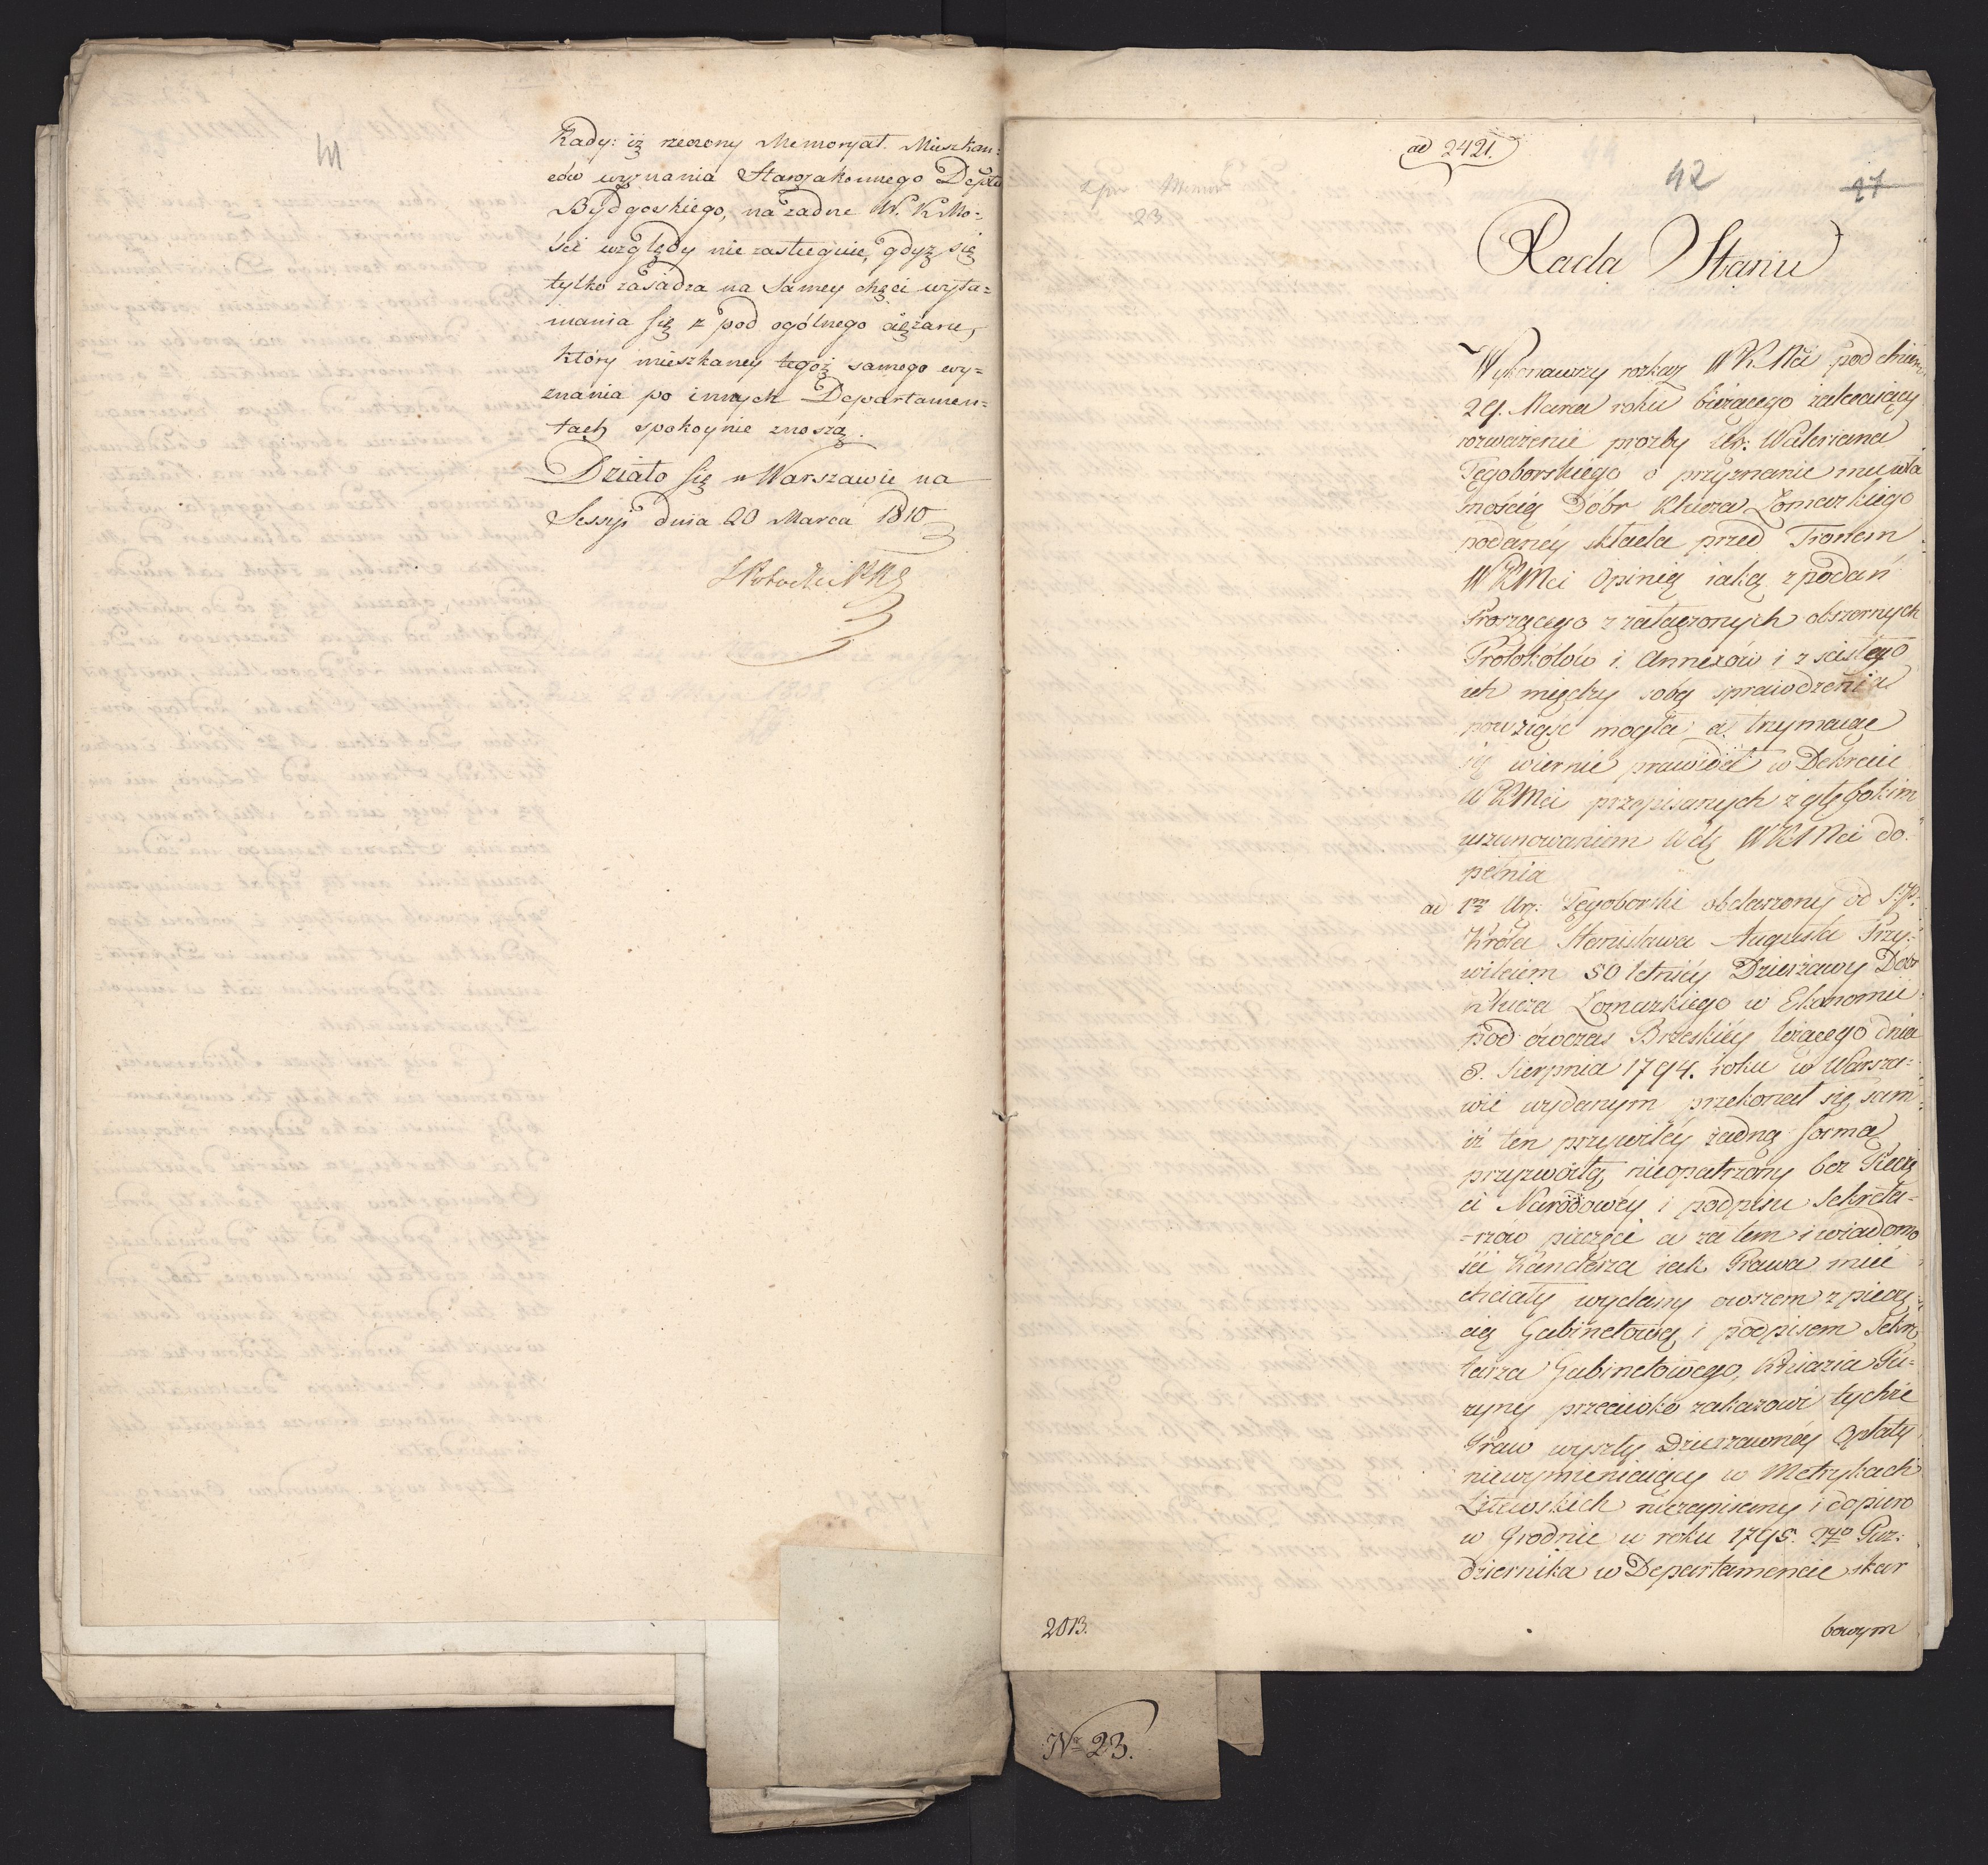 41
Rady: iż rzeczony Memoryał Mieszkań=
ców wyznania Starozakonnego Deptu
Bydgoskiego, na żadne W. K Mo=
ści względy nie zasługuie, gdyż się
tylko zasadza na samey chęci wyła=
mania się z pod ogólnego ciężaru,
który mieszkańcy tegoż samego wy=
znania po innych Departamen=
tach spokoynie znoszą.
Działo się w Warszawie na
Sessyi dnia 20 Marca 1810
ad 2421.
42
27
23
Rada Stanu
Wykonawszy rozkaz WKMci pod dniem
29. Marca roku bieżącego zalecaiący
rozważenie prozby Ur: Waleriana
Tęgoborskiego o przyznanie mu wła
snością Dóbr Klucza Łomazkiego
podaney składa przed Tronem
WKMci Opinię iaką z podań
Proszącego z załączonych obszernych
Protokółów i Annexów i z scisłego
ich między sobą sprawdzenia
powziąść mogła a trzymaiąc
się wiernie prawideł w Dekrecie
WKMci przepisanych z głębokim
uszanowaniem Wolę WKMci do=
pełnia
ad 1m Ur: Tęgoborski obdarzony od S.P.
Króla Stanisława Augusta Przy=
wileiem 50 letniey Dzierżawy Dóbr
Klucza Łomazkiego w Ekonomii
pod ówczas Brzeskiey leżącego dnia
8. Sierpnia 1794. roku w Warsza=
wie wydanym przekonał się sam
iż ten przywiley żadną formą
przyzwoitą nieopatrzony bez Pieczę
ci Narodowey i podpisu Sekreta=
=rzów pieczęci a za tem i wiadomo
ści Kanclerza iak Prawa mieć
chciały wydany owszem z pieczę
cią Gabinetową i podpisem Sekre
tarza Gabinetowego, Xiązia Pu=
zyny przeciwko zakazowi tychże
Praw wyszły Dzierzawney Opłaty
niewymieniaiący w Metrykach
Litewskich niezapisany i dopiero
w Grodnie w roku 1795. Paz=
dziernika w Departamencie skar
bowym
2013.
Nr 23.